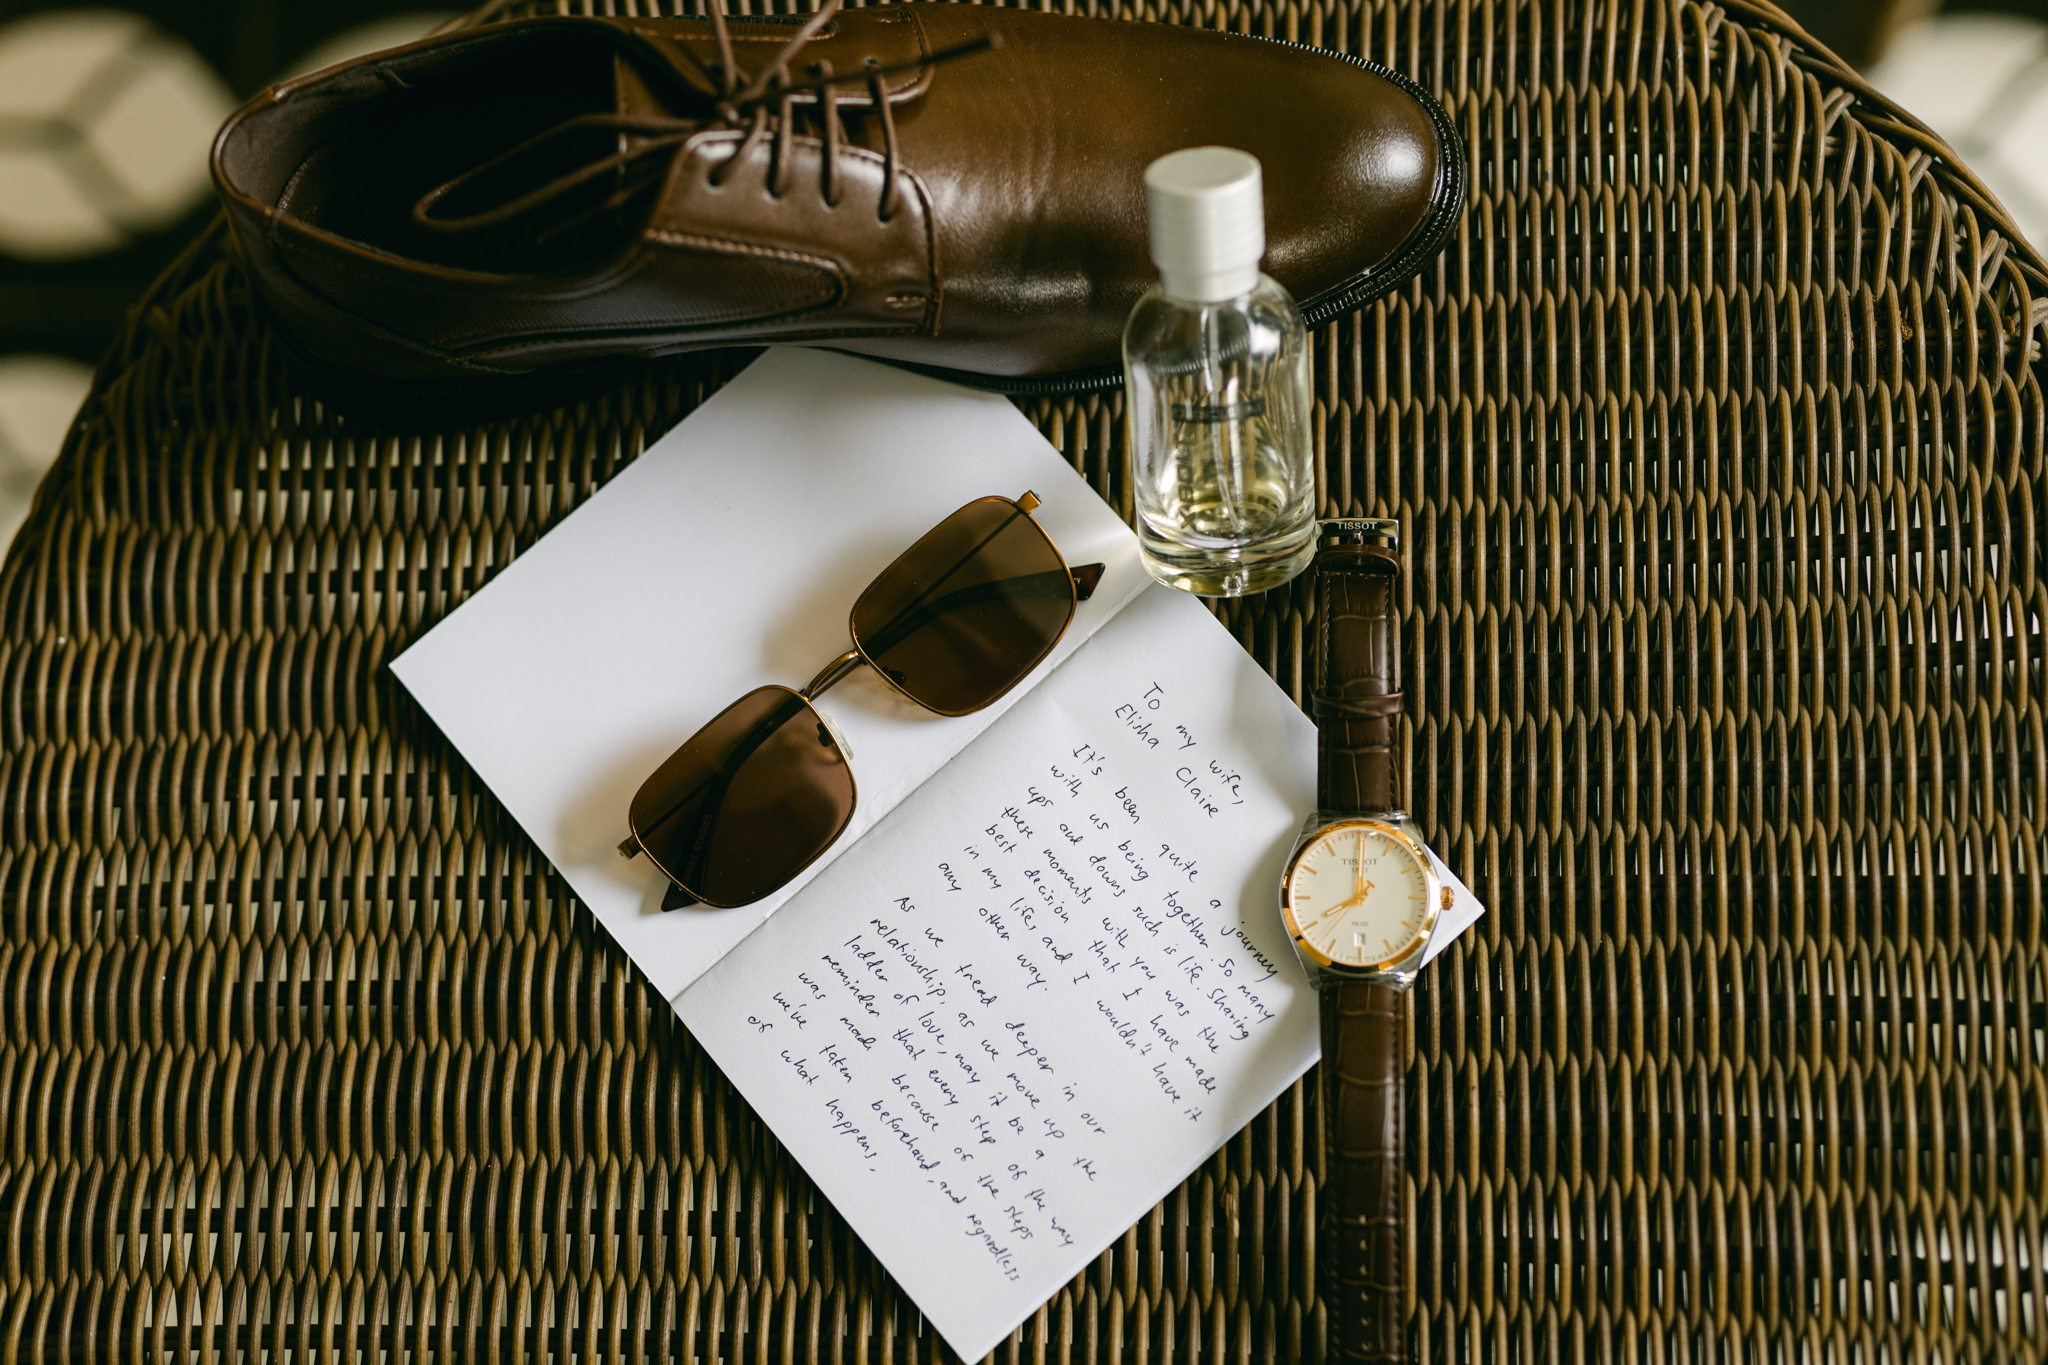 TISSOT
To my wife,
Elisha Claire
It's been quite a journey
with us being together. So many
ups and downs such is life. Sharing
these moments with you was the
best decision that I have made
in my life, and I wouldn't have it
any other way.
As we tread deeper in our
relationship, as we move up the
ladder of love, may it be a
reminder that every step of the way
was made because of the steps
we've taken beforehand, and regardless
of what happens,
TISSOT